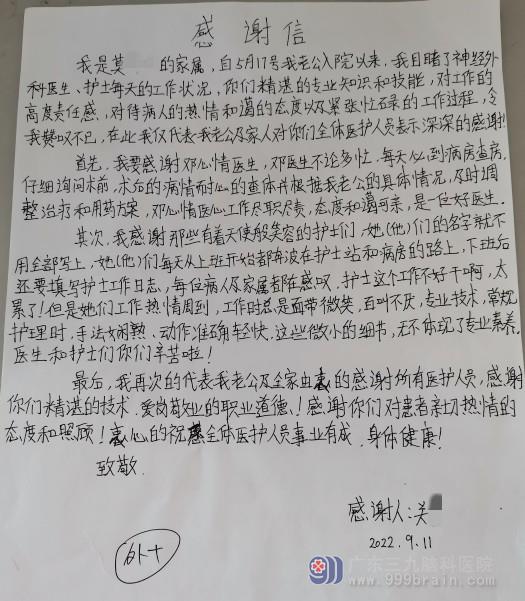 感谢信
我是莫 的家属，自5月17号我老公入院以来，我目睹了神经外
科医生、护士每天的工作状况，你们精湛的专业知识和技能，对工作的
高度责任感，对待病人的热情和蔼的态度以及紧张忙碌的工作过程，令
我赞叹不已，在此我仅代表我老公及家人对你们全体医护人员表示深深的感谢！
首先，我要感谢邓心情医生，邓医生不论多忙，每天必到病房查房，
仔细询问术前，术后的病情耐心的查体并根据我老公的具体情况，及时调
整治疗和用药方案，邓心情医心工作尽职尽责，态度和蔼可亲，是一位好医生。
其次，我感谢那些有着天使般笑容的护士们，她(他)们的名字就不
用全部写上，她(他)们每天从上班开始都奔波在护士站和病房的路上，下班后
还要填写护士工作日志，每位病人及家属都在感叹，护士这个工作不好干啊，太
累了！但是她们工作热情周到，工作时总是面带微笑，百叫不厌，专业技术，常规
护理时，手法娴熟、动作准确轻快，这些微小的细节，无不体现了专业素养，
医生和护士们你们辛苦啦！
最后，我再次的代表我老公及全家由衷的感谢所有医护人员，感谢
你们精湛的技术，爱岗敬业的职业道德！感谢你们对患者亲切热情的
态度和照顾！衷心的祝愿全体医护人员事业有成，身体健康！
致敬.
感谢人:关
2022.9.11
外十
广东三九脑科医院
www.999brain.com